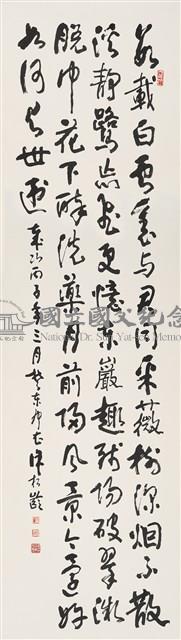 數載白雲裏与君同采薇樹深烟不散
溪靜鷺忘飛更憶東巖趣殘陽破翠微
脫巾花下醉洗藥月前歸風景今還好
如何与世違 歲次丙子年三月楚東 松齡
國立國父紀念館
National Dr. Sun Yat-sen Memorial Hall